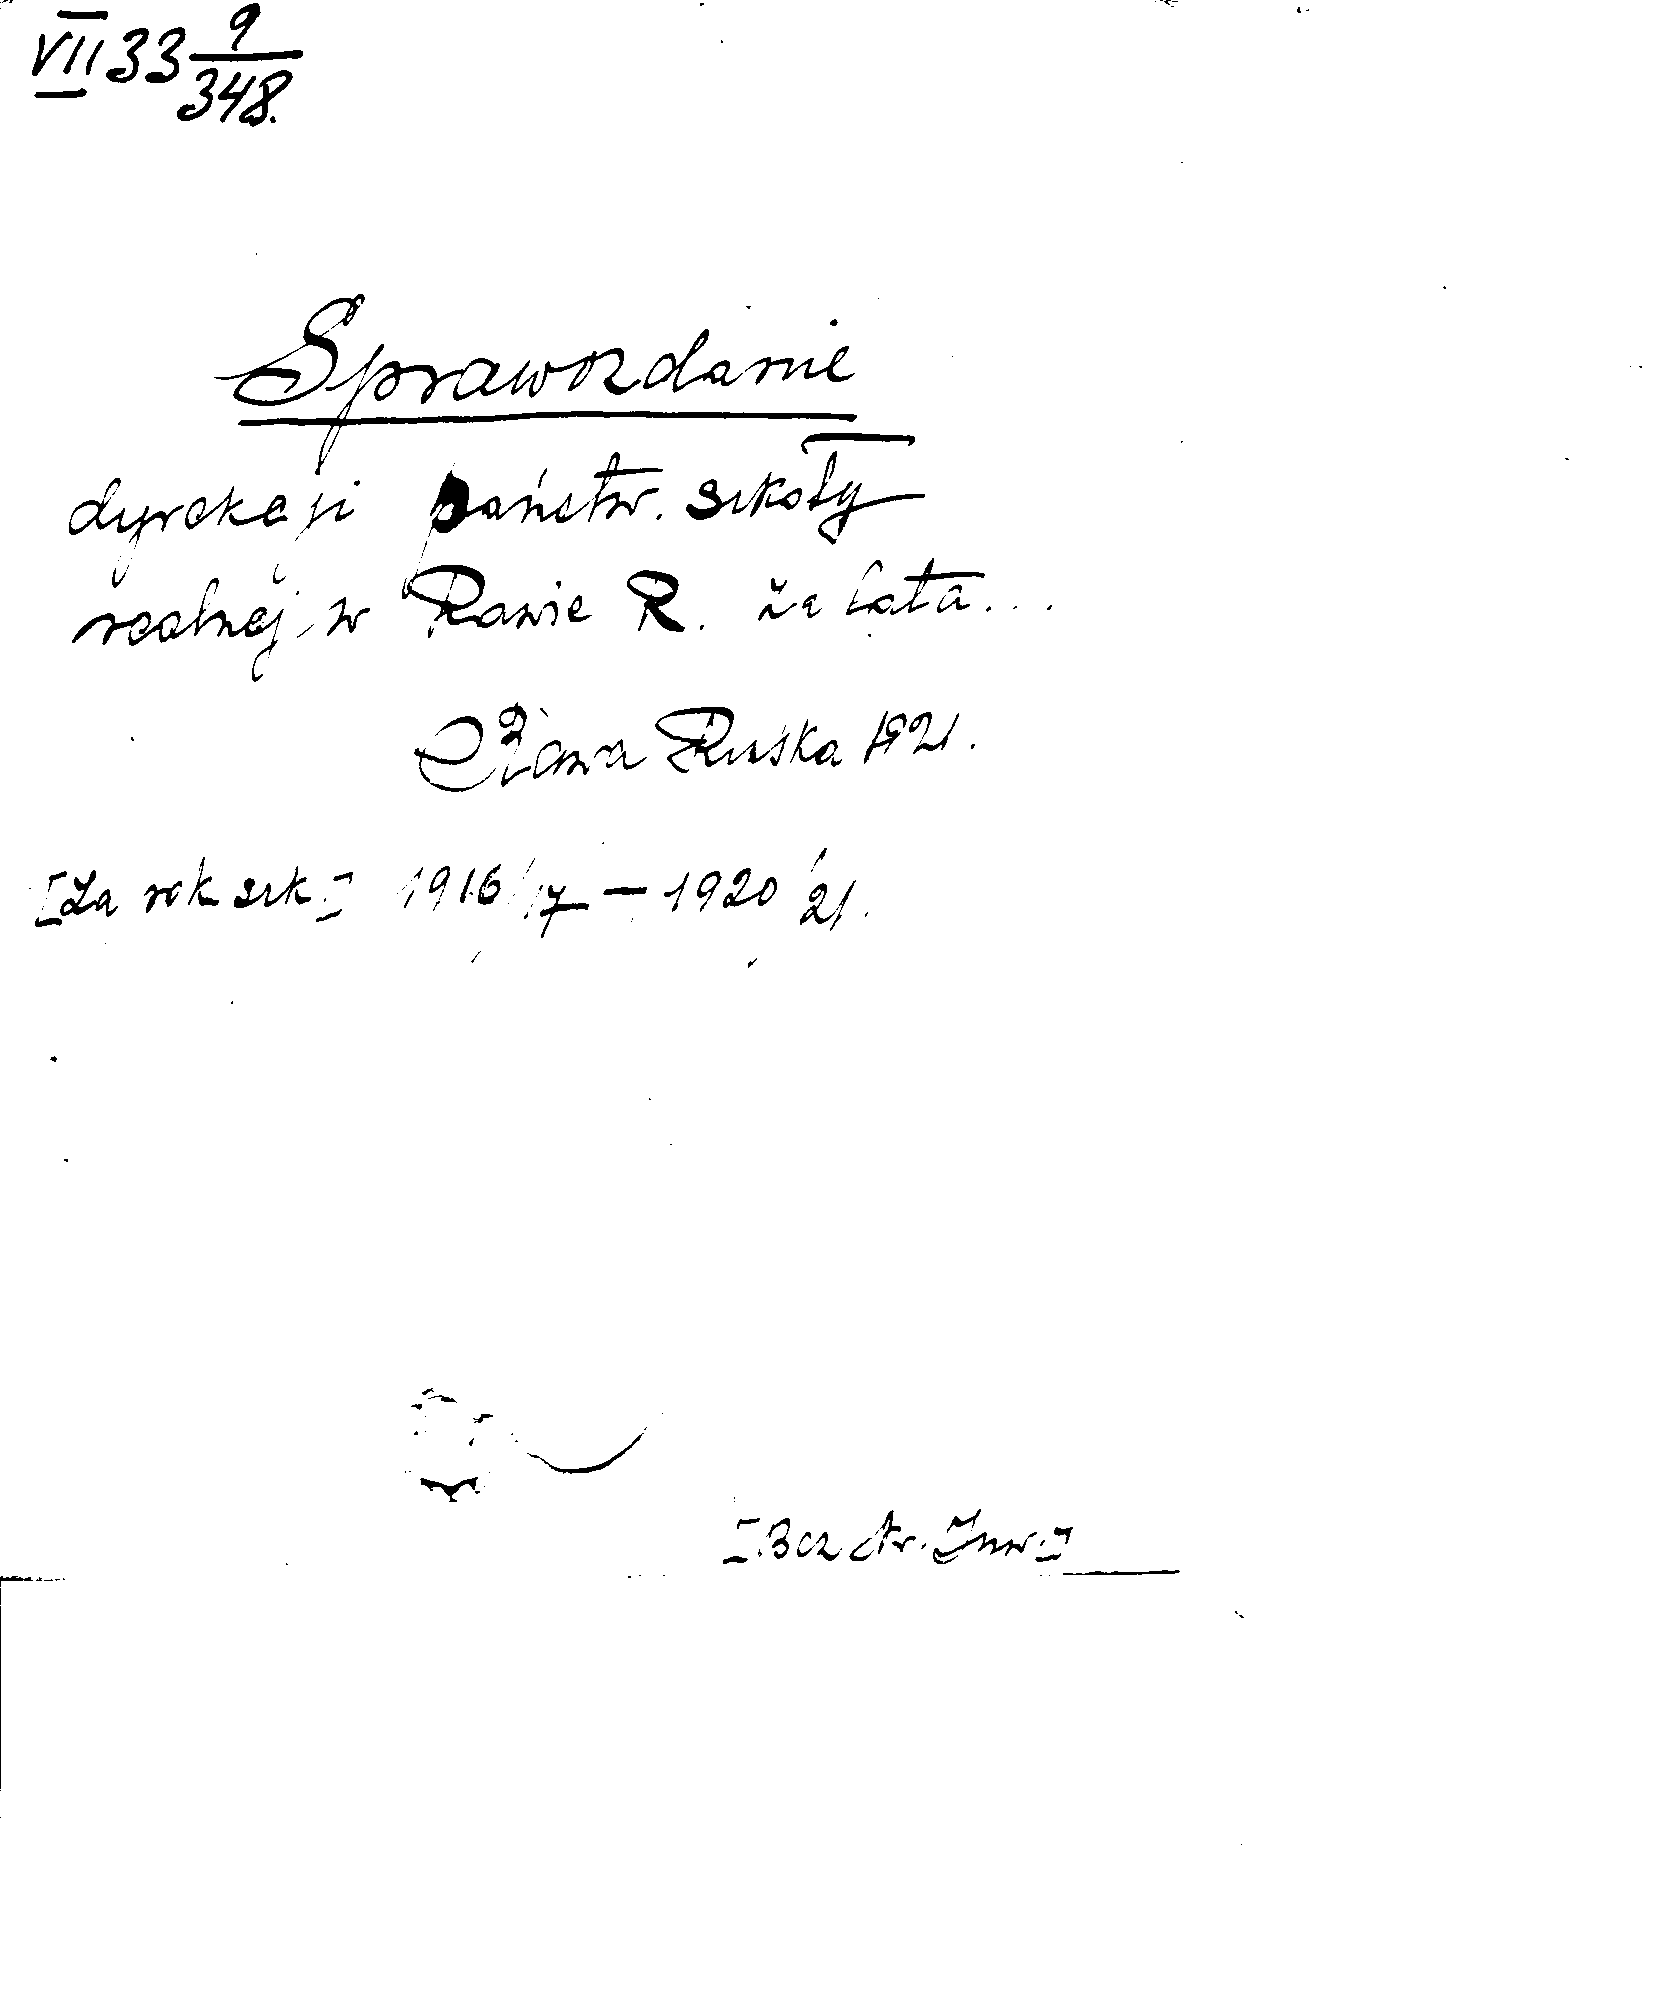 VII 33 9/348.
Sprawozdanie
dyrekcji państw. szkoły
realnej w Rawie R. za lata...
Rawa Ruska 1921.
[Za rok szk.] 1916/17 — 1920/21.
[Bez Nr. Inw.]